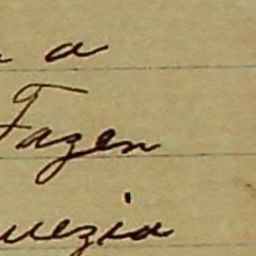 a
Fazen
uezia